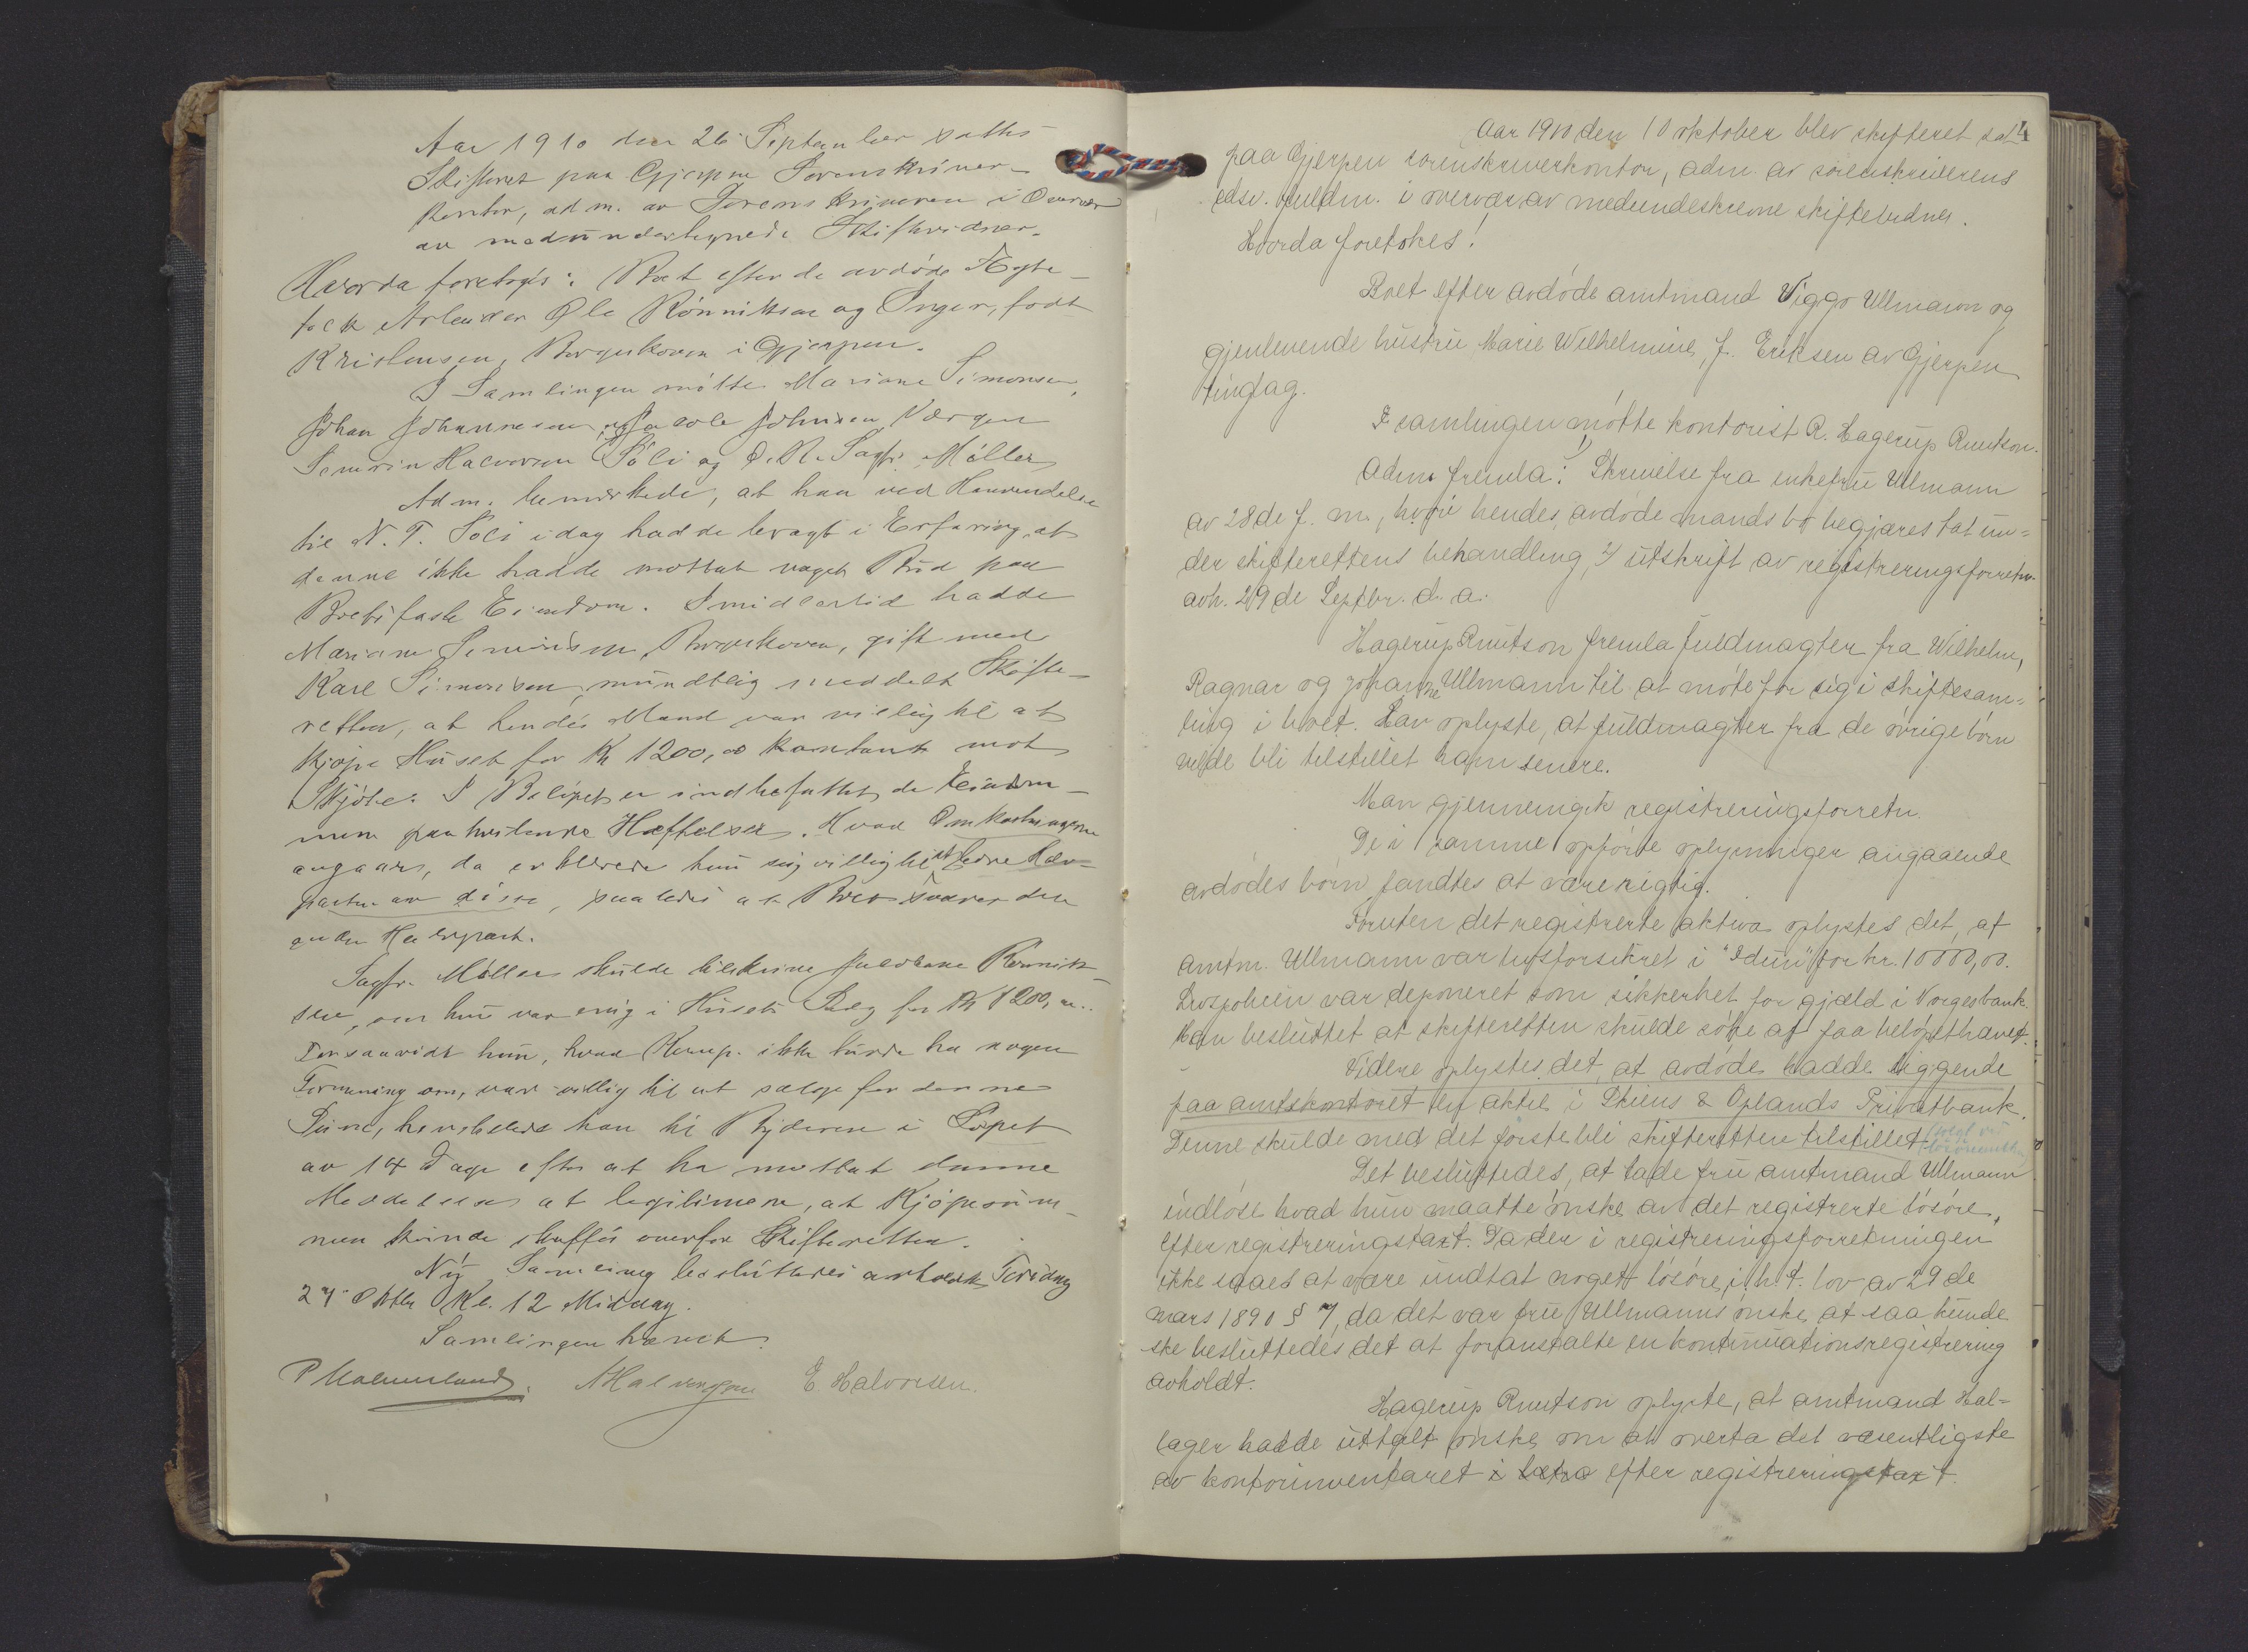 Aar 1910 den 26 September sattes
Skifteret paa Gjerpen Sorenskriver-
kontor, adm. av Sorenskriveren i Overvær
av medundertegnede Skiftevidner.
Hvorda foretoges: Boet efter de avdøde Ægte-
folk Arbeider Ole Rönniksen og Inger, født
Kristensen, Borgeskogen i Gjerpen.
I Samlingen møtte Mariane Simonsen,
Johan Johannesen, Jacob Johnsen, Værgen
Halvorsen Foli og O.R. Sagfr. Møller
Adm. bemerkede, at han ved Henvendelse
til N. T. Foli idag hadde bragt i Erfaring, at
denne ikke hadde mottat noget Bud paa
Boets faste Eiendom. Imidlertid hadde
Mariane Simonsen, gift med
Karl Simonsen, mundtlig meddelt Skifte-
retten, at hendes Mand var villig til at
kjøpe Huset for Kr 1200,00 kontant mot
Skjøte. I Beløpet er indbefattet de Eiendom-
men paahvilende Heftelser. Hvad Omkostningerne
angaar, da erklærede hun sig villig til at bære Halv-
parten av disse, saaledes at Boet svarer den
anden Halvpart.
Sagfr. Møller skulde tilskrive Rönnik-
sen, om hun var enig i Husets Salg for Kr 1200,00.
Forsaavidt hun, hvad Komp. ikke turde ha nogen
Formening om, var villig til at sælge for denne
Sum, henstilledes han til Byderen i Løpet
av 14 Dage efter at ha mottat denne
Meddelelse at legitimere, at Kjøpesum-
men kunde skaffes overfor Skifteretten.
Ny Samling besluttedes avholdt Torsdag
27 Oktbr Kl. 12 Middag.
Samlingen hævet.
A Halvorsen E Halvorsen.
14
Aar 1910 den 10 oktober blev skifteret sat
paa Gjerpen sorenskriverkontor, adm. av sorenskriverens
edsv. fuldm. i overvær av medundeskrevne skiftevidner.
Hvorda foretokes!
Boet efter avdøde amtmand Viggo Ullmann og
gjenlevende hustru Marie Wilhelmine, f. Eriksen av Gjerpen
tinglag.
I samlingen møtte kontorist R. Hagerup Knutson.
Adm. fremla: 1) Skrivelse fra enkefru Ullmann
av 28de f. m., hvori hendes avdøde mands bo begjæres tat un=
der skifterettens behandling, 2) utskrift av registreringsforretn.
avh. 29de Septbr. d. a.
Hagerup Knutson fremla fuldmagter fra Wilhelm,
Ragnar og Johanne Ullmann til at møte for sig i skiftesam=
ling i boet. Han oplyste, at fuldmagter fra de øvrige børn
vilde bli tilstillet ham senere.
Man gjennemgik registreringsforretn.
De i samme opførte oplysninger angaaende
avdødes børn fandtes at være rigtig.
Foruten det registrerte aktiva oplystes det, at
amtm. Ullmann var livsforsikret i "Idun" for kr. 10000,00.
Livspolicen var deponeret som sikkerhet for gjæld i Norges bank.
Man besluttet at skifteretten skulde søke at faa beløpet hævet.
Videre oplystes det, at avdøde hadde liggende
paa amtskontoret en aktie i Skiens & Oplands Privatbank.
Denne skulde med det første bli skifteretten tilstillet
Det besluttedes, at lade fru amtmand Ullmann
indløse hvad hun maatte ønske av det registrerte løsøre,
efter registreringstaxt. Da der i registreringsforretningen
ikke saaes at være undtat noget løsøre, i h. t. lov av 29de
mars 1890 § 7, da det var fru Ullmanns ønske, at saa kunde
ske besluttedes det at foranstalte en kontinuationsregistrering
avholdt.
Hagerup Knutson oplyste, at amtmand Hal=
lager hadde uttalt ønske om at overta det væsentligste
av kontorinventaret efter registreringstaxt.